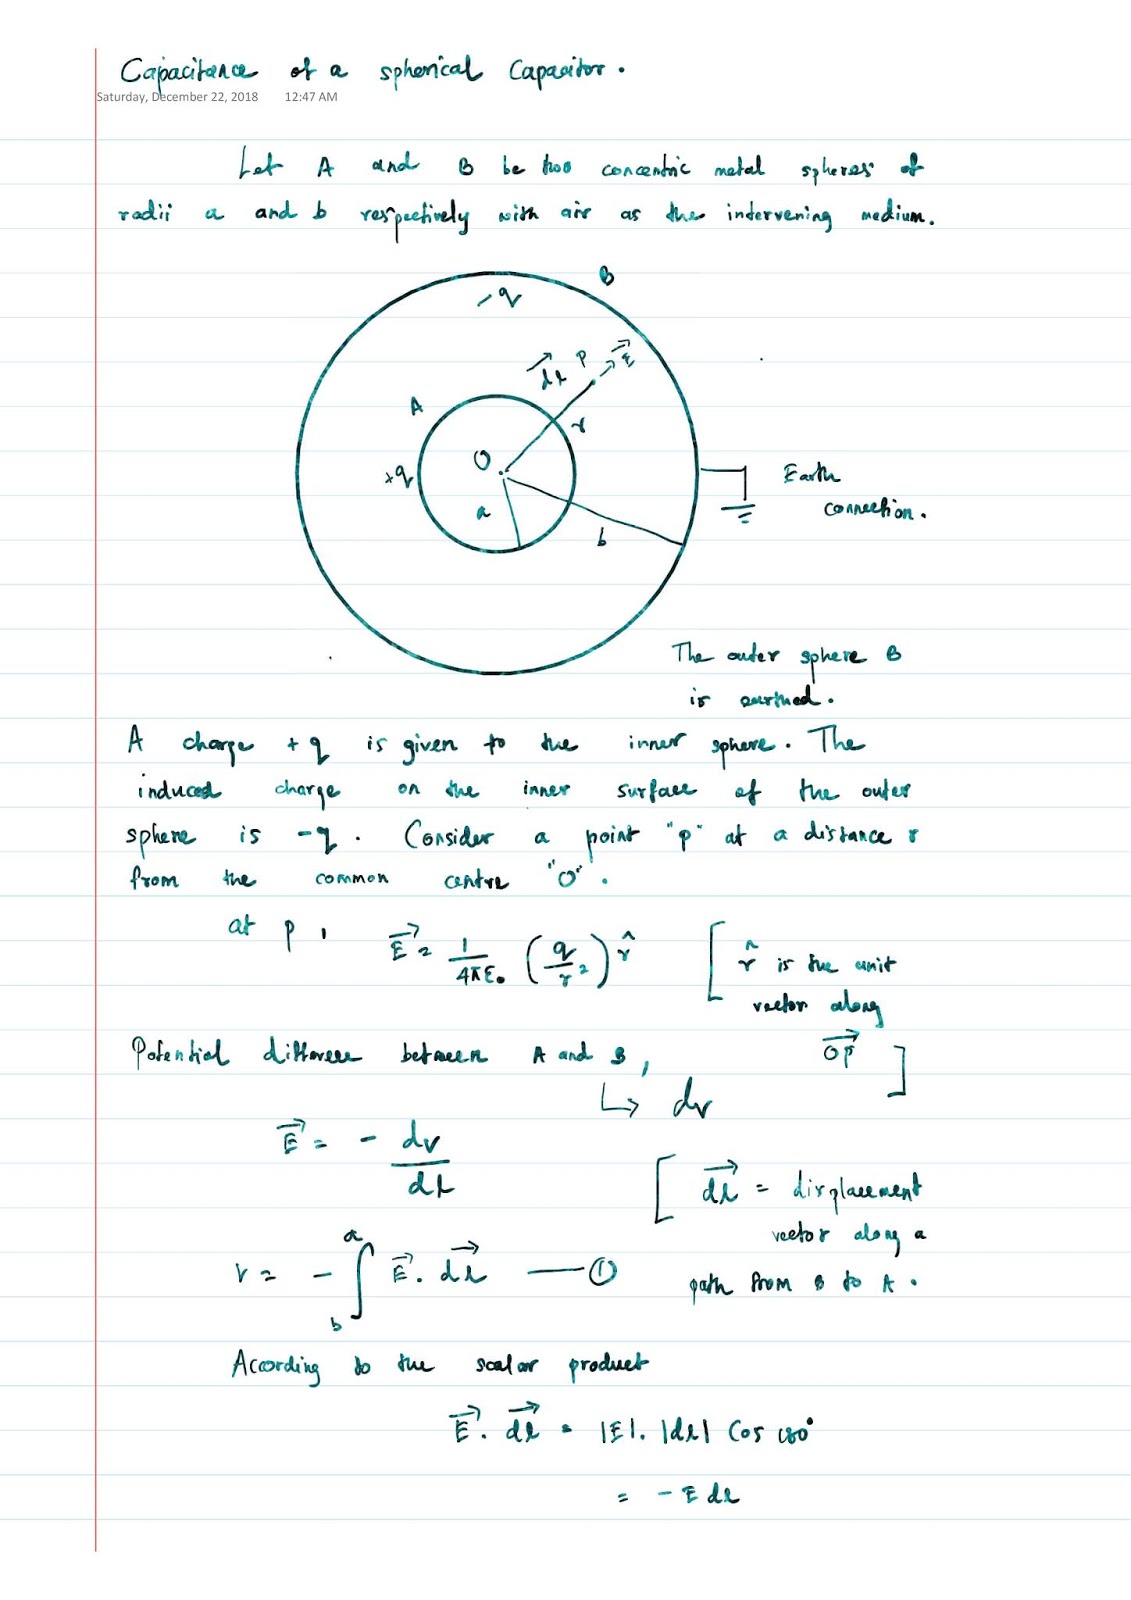 Capacitance of a spherical Capacitor.
Saturday, December 22, 2018 12:47 AM
Let A and B be two concentric metal spheres of
radii a and b respectively with air as the intervening medium.
B
-q
dl→ P → E→
A
r
O
+q
a
b
Earth
connection.
The outer sphere B
is earthed.
A charge +q is given to the inner sphere. The
induced charge on the inner surface of the outer
sphere is -q. Consider a point "P" at a distance r
from the common centre "O".
at P, E→ = 1/4πε₀ (q/r²) r̂ [ r̂ is the unit
vector along
OP→ ]
Potential difference between A and B,
↳ dv
E→ = - dv/dl
[ dl→ = displacement
vector along a
path from B to A.
V = - ∫ₐᵇ E→ . dl→ —— ①
According to the scalar product
E→ . dl→ = |E|. |dl| Cos 180°
= - E dl